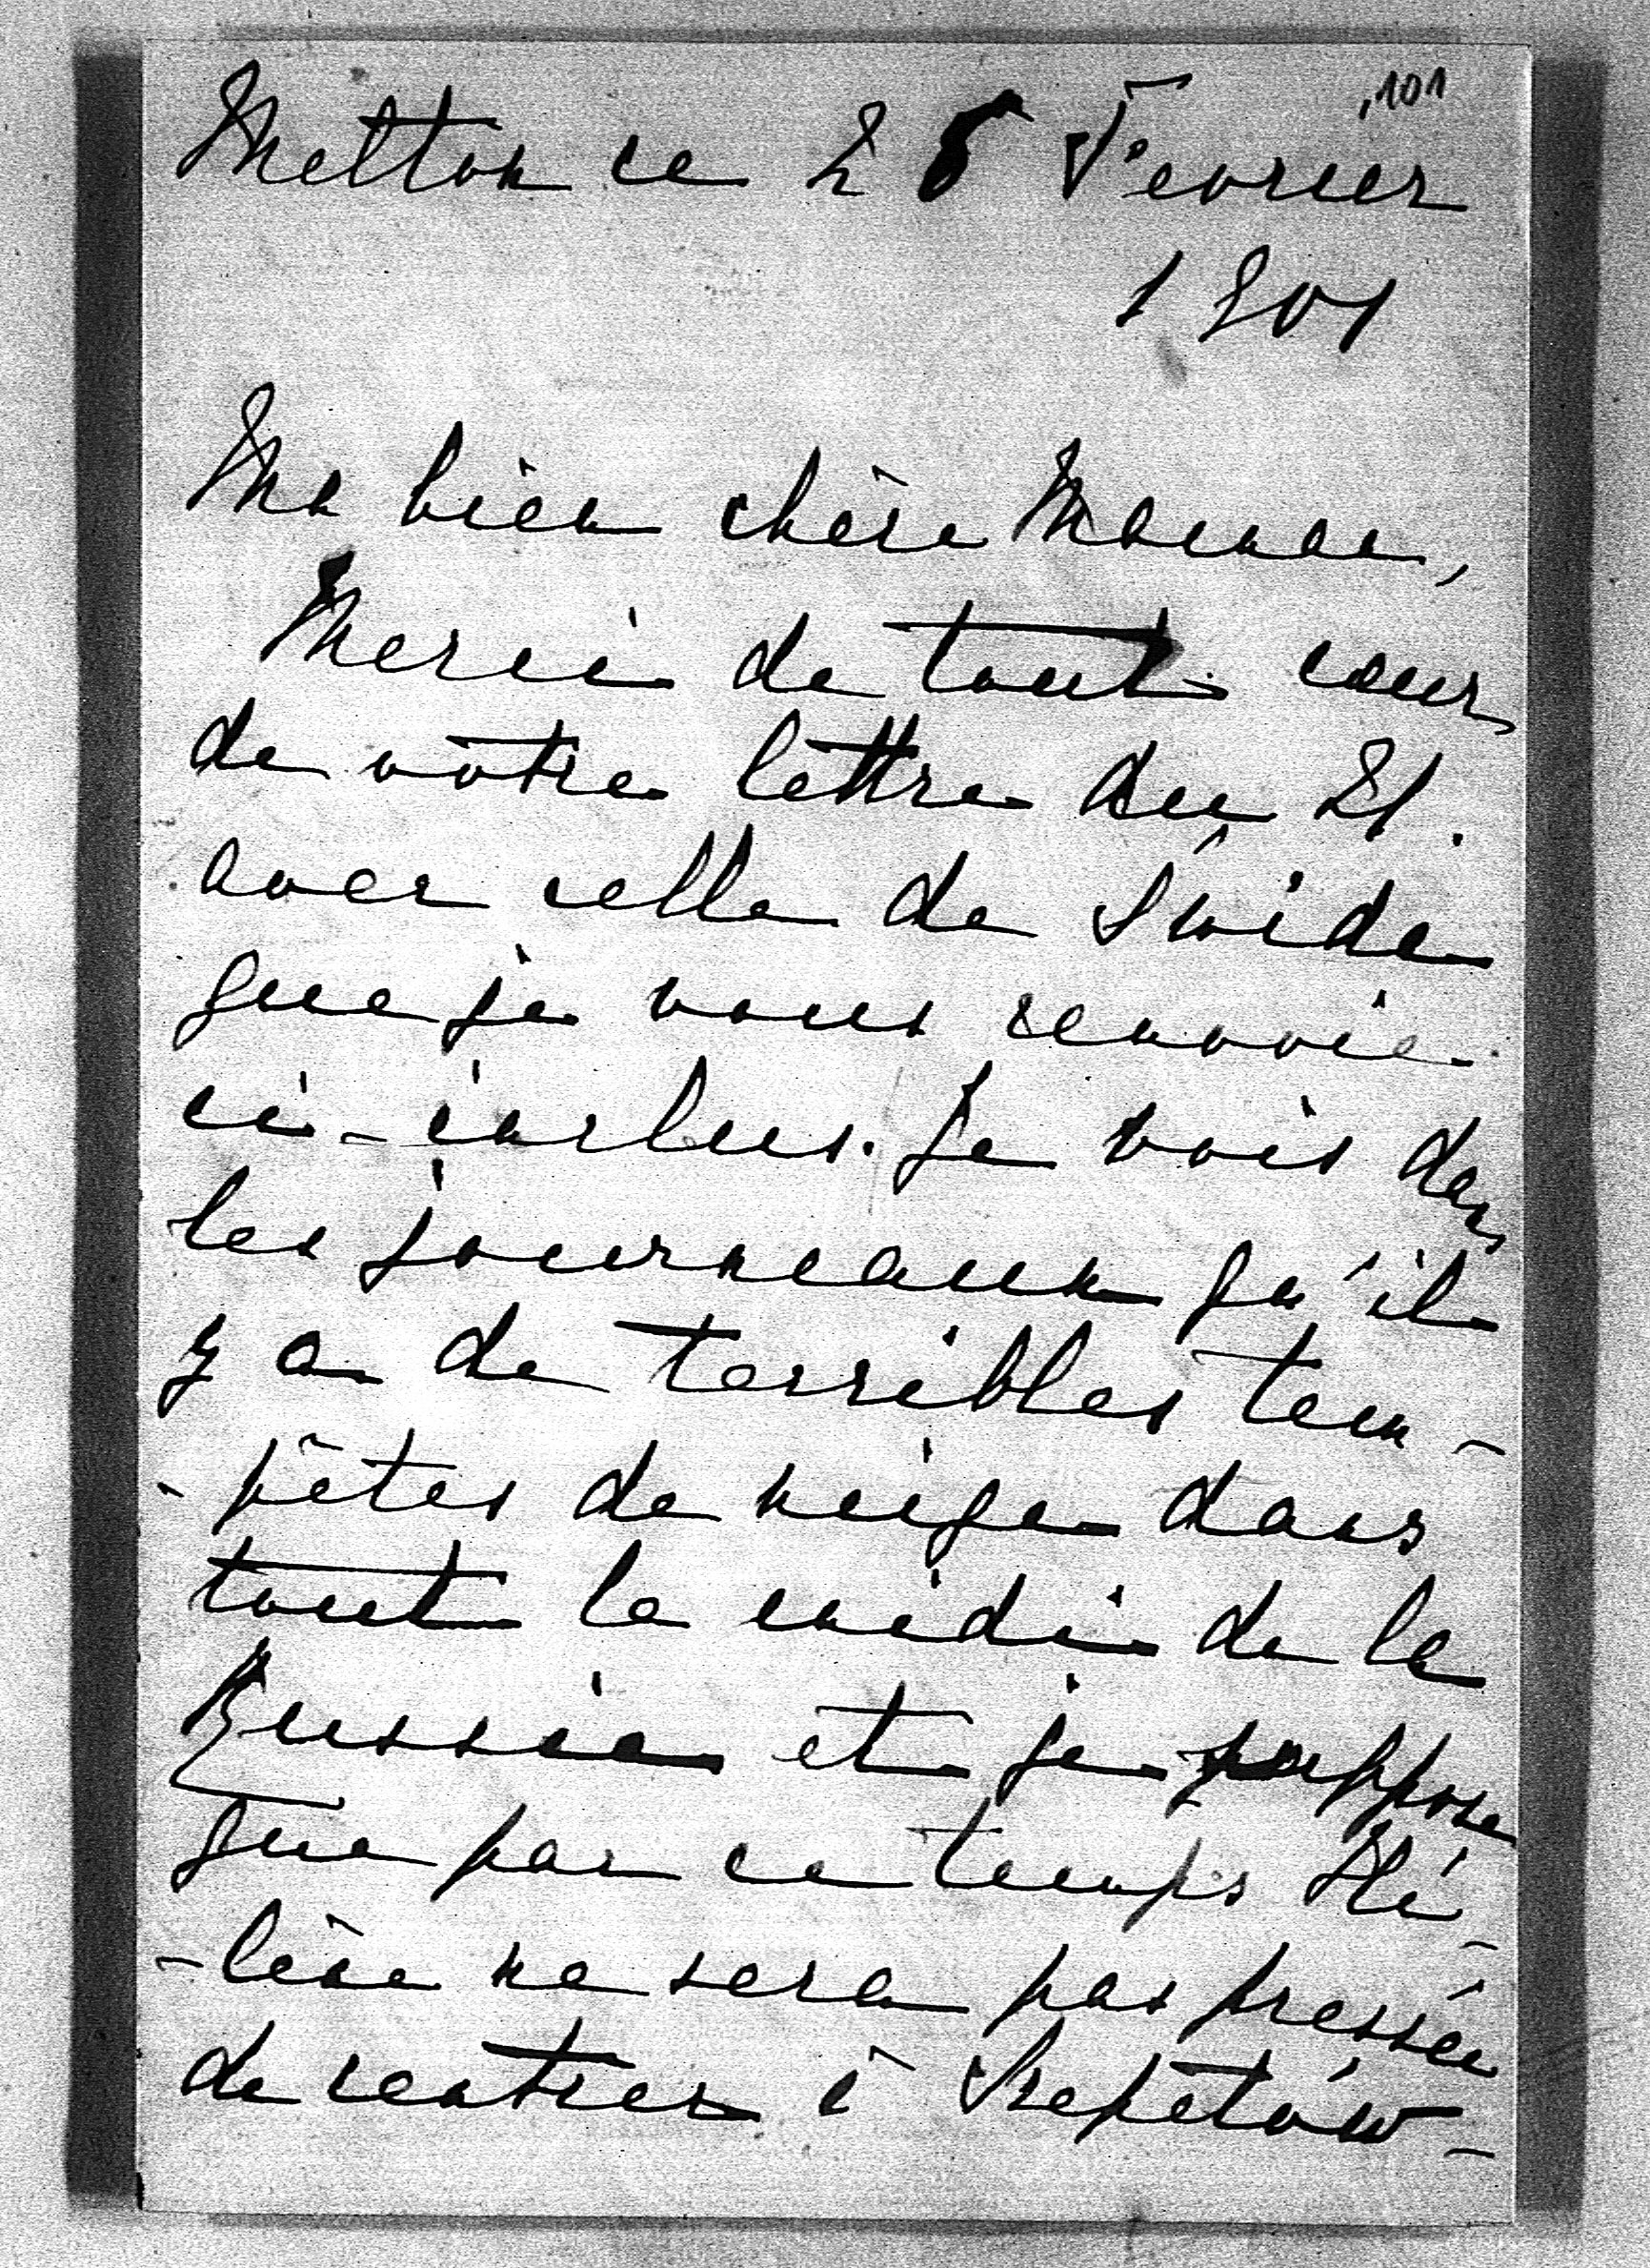 101
Melton ce 25 Fevrier
1901
Ma bien chère Maman,
Merci de tout coeur
de votre lettre du 21.
avec celle de
que je vous renvoie
ci-inclus. Je vois dans
les journeaux qu'il
y a de terribles tem-
-pêtes de neige dans
tout le midi de la
Russie et je suppose
que par ce temps Hé-
-lène ne sera pas pressée
de rentrer à Szepetów-